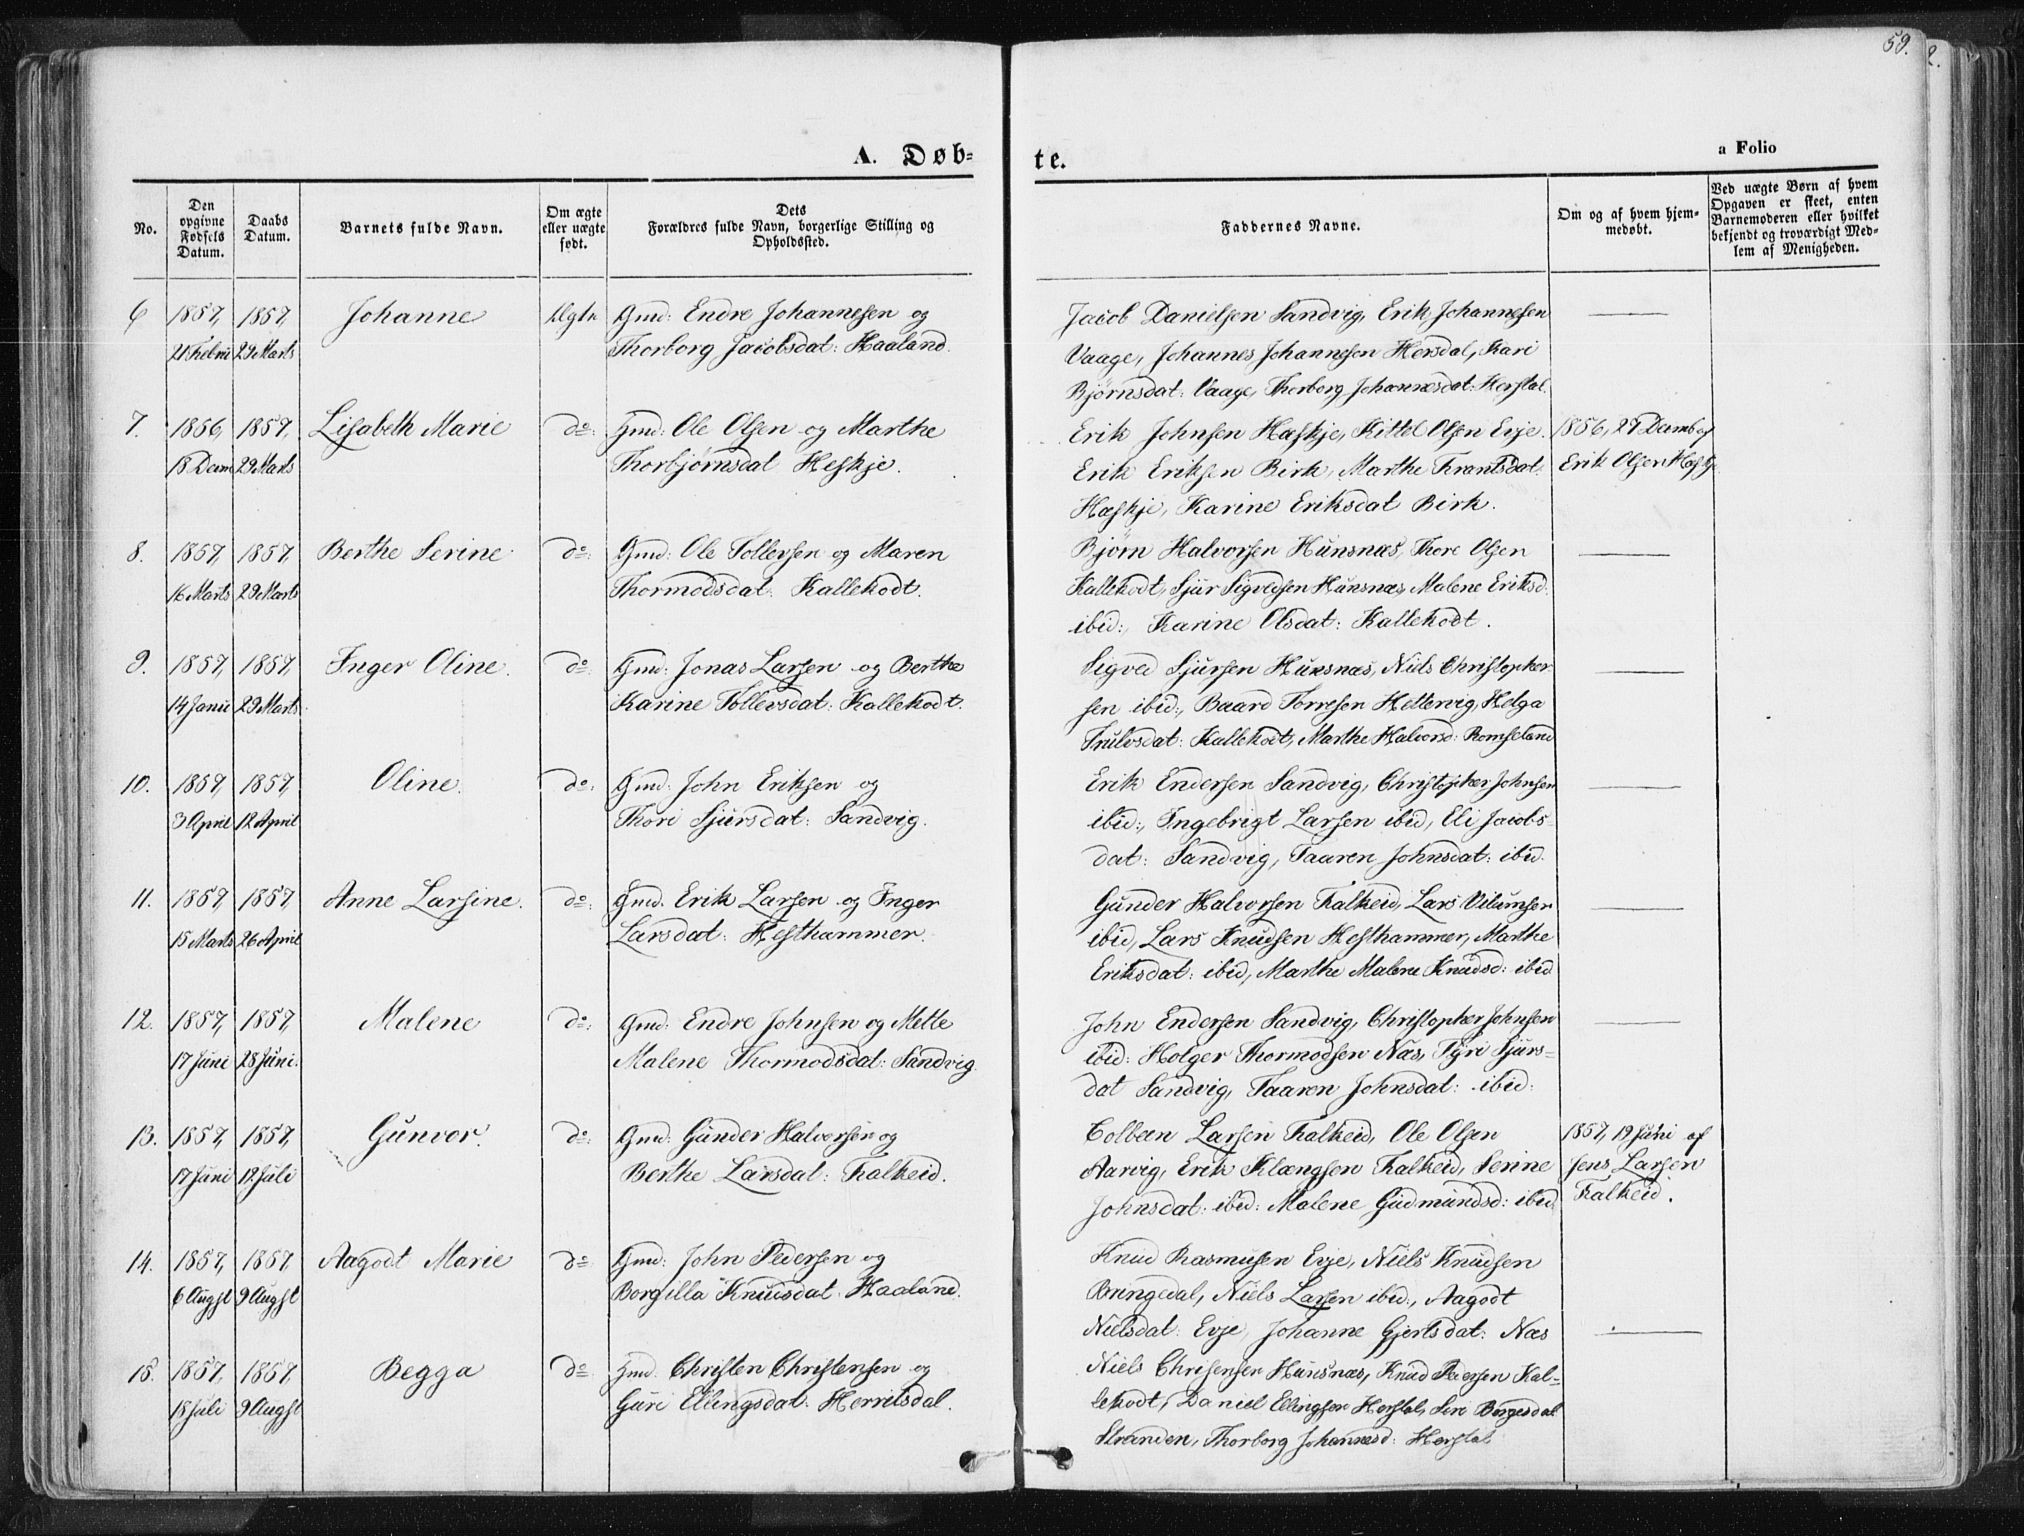 59.
2.
A. Døb-
te.
a Folio
No.
Den opgivne Fødsels Datum.
Daabs Datum.
Barnets fulde Navn.
Om ægte eller uægte født.
Dets Forældres fulde Navn, borgerlige Stilling og Opholdssted.
Faddernes Navne.
Om og af hvem hjemmedøbt.
Ved uægte Børn af hvem Opgaven er skeet, enten Barnemoderen eller hvilket bekjendt og troværdigt Medlem af Menigheden.
6 1857, 1857, Johanne Ægte Gmd: Endre Johannesen og Jacob Danielsen Sandvig, Erik Johannesen
21 Febru 29 Marts Thorborg Jacobsdat: Haaland. Vaage, Johannes Johannesen Hersdal, Kari
Bjørnsdat: Vaage, Thorborg Johannesdat: Herstal.
7. 1856, 1857, Lisabeth Marie do: Gmd: Ole Olsen og Marthe Erik Johnsen Hæskje, Kittel Olsen Evje. 1856, 27 Decmb af
15 Decm 29 Marts Thorbjørnsdat Heskje. Erik Eriksen Birk, Marthe Frantsdat. Erik Olsen Hæskje
Hæskje, Karine Eriksdat Birk.
8. 1857, 1857, Berthe Serine do: Gmd: Ole Tollevsen og Maren Bjørn Halvorsen Hunsnæs, Thore Olsen
16 Marts 29 Marts Thormodsdat: Kallekodt. Kallekodt, Sjur Sigvedsen Hunsnæs, Malene Eriksd:
ibid:, Karine Olsdat: Kallekodt.
9. 1857, 1857, Inger Oline. do: Gmd: Jonas Larsen og Berthe Sigved Sjursen Hunsnæs, Niels Christopher-
14 Janu 29 Marts Karine Tollevsdat: Kallekodt. sen ibid:, Baard Torresen Hettervig, Helga
Trulvsdat: Kallekodt, Marthe Halvorsd: Romseland
10. 1857, 1857, Oline. do: Gmd: John Eriksen og Erik Endersen Sandvig, Christopher Johnsen
3 April 12 April Thori Sjursdat: Sandvig. ibid:, Ingebrigt Larsen ibid, Eli Jacobs-
dat: Sandvig, Taaren Johnsdat: ibid.
11. 1857, 1857, Anne Larsine. do: Gmd. Erik Larsen og Inger Gunder Halvorsen Falkeid, Lars Vilumsen
15 Marts 26 April Larsdat: Hesthammer. ibid, Lars Knudsen Hesthammer, Marthe
Eriksdat: ibid, Marthe Malene Knudsd: ibid
12. 1857, 1857, Malene do: Gmd: Endre Johnsen og Mette John Endersen Sandvig, Christopher Johnsen
17 Juni 28 Juni. Malene Thormodsdat: Sandvig. ibid: Holger Thormodsen Næs, Tyri Sjurs-
dat Sandvig, Taaren Johnsdat: ibid:
13. 1857, 1857, Gunvor. do: Gmd: Gunder Halvorsen og Colbeen Larsen Falkeid, Ole Olsen 1857, 19 Juni af
17 Juni 12 Juli Berthe Larsdat: Falkeid. Aarvig, Erik Klængsen Falkeid, Serine Jens Larsen
Johnsdat: ibid: Malene Gudmundsd: ibid. Falkeid.
14. 1857, 1857, Aagodt Marie do: Gmd: John Pedersen og Knud Rasmusen Evje, Niels Knudsen
6 Augst 9 Augst Borgilla Knudsdat: Haaland. Bringedal, Niels Larsen ibid:, Aagodt
Nielsdat: Evje, Johanne Gjertsdat: Næs
15. 1857, 1857, Begga do: Gmd. Christen Christensen og Niels Chrisensen Hunsnæs, Knud Pedersen Kal-
18 Juli 9 Augst Guri Ellingsdat: Herrilsdal. lekodt, Daniel Ellingsen Herstal, Siri Børgesdat
Stranden, Thorborg Johannesd: Herstal